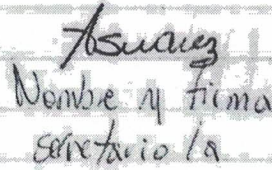 Asuarez
Nombre y firma
secretario la